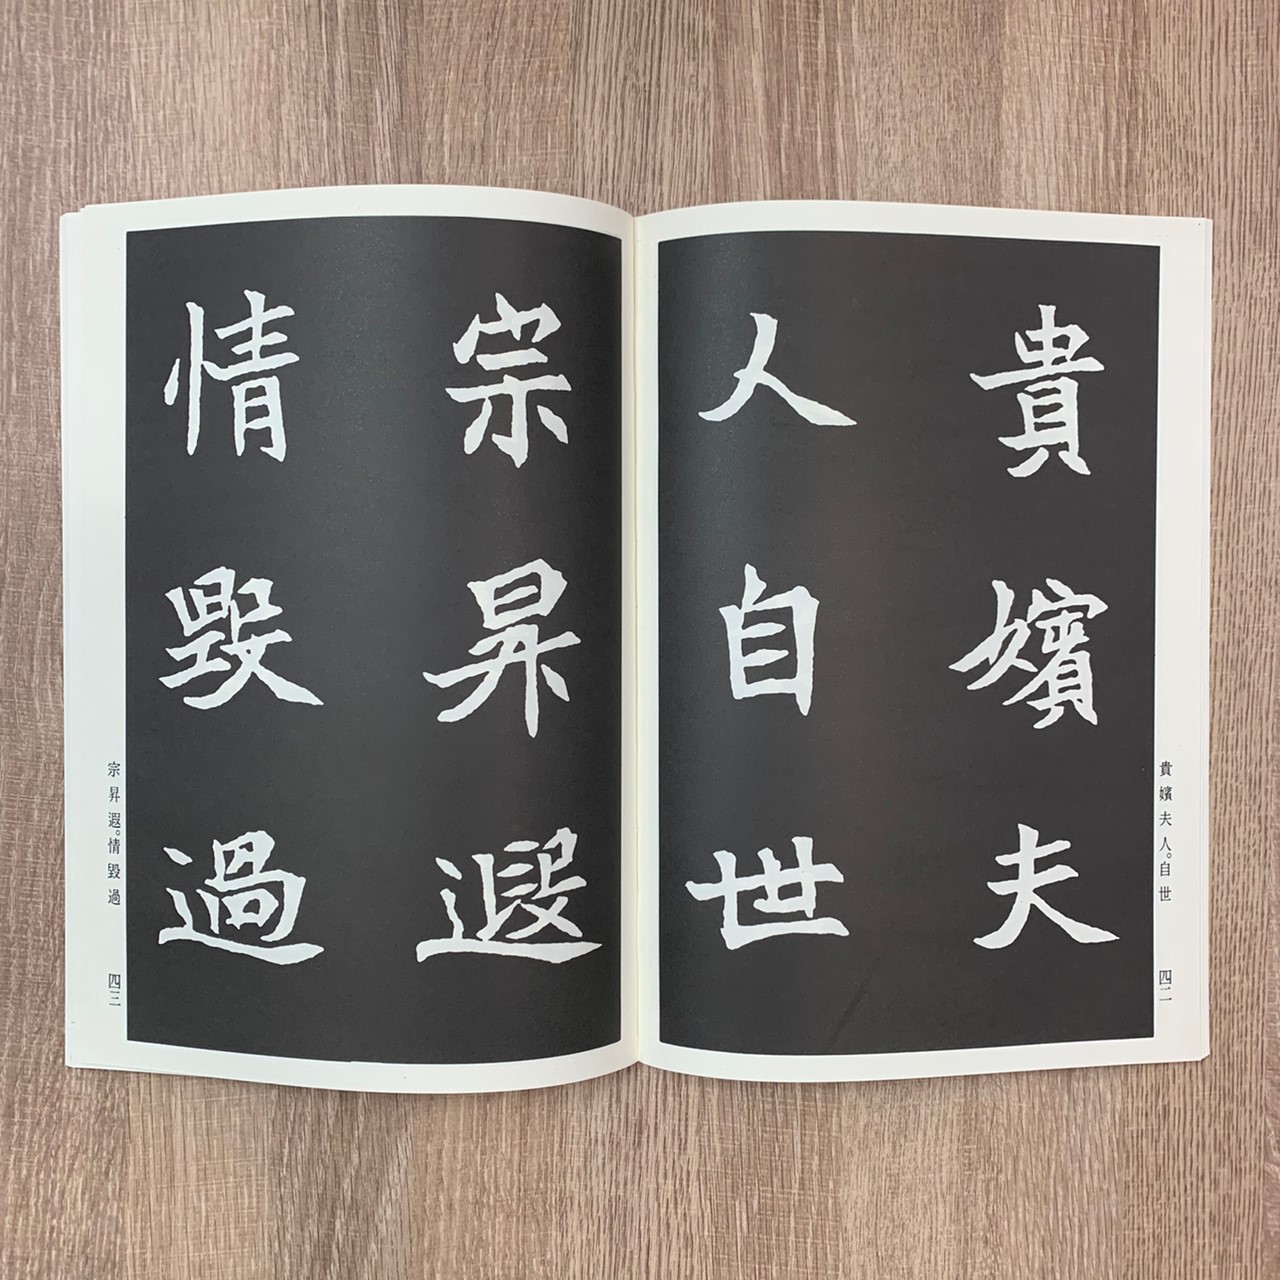 貴嬪夫
人自世
貴嬪夫人。自世
四二
宗昇遐
情毀過
宗昇遐。情毀過
四三